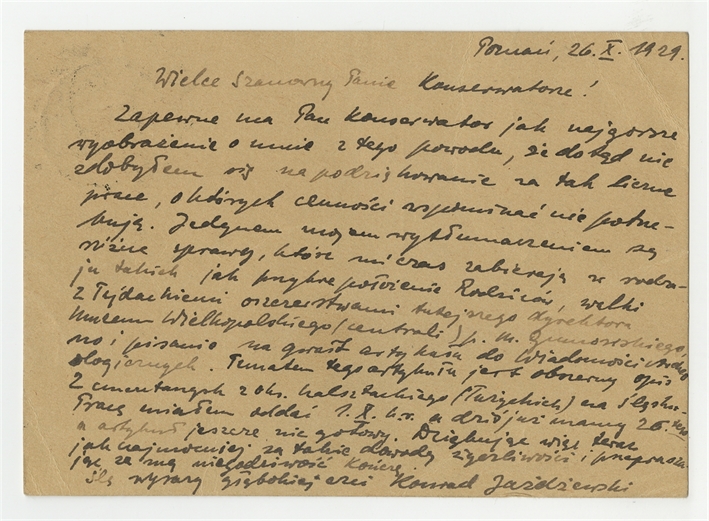 Poznań, 26.X. 1929.
Wielce Szanowny Panie Konserwatorze!
Zapewne ma Pan Konserwator jak najgorsze
wyobrażenie o mnie z tego powodu, że dotąd nie
zdobyłem się na podziękowanie za tak liczne
prace, o których cenności wspominać nie potrze-
bują. Jedynem mojem wytłumaczeniem są
różne sprawy, które mi czas zabierają w rodza-
ju takich jak przykre położenie Rodziców, walki
z łajdackiemi oszczerstwami tutejszego dyrektora
Muzeum Wielkopolskiego (centrali) p. M. Gumowskiego,
no i pisanie na gwałt artykułu do Wiadomości Archeo-
ologicznych. Tematem tego artykułu jest obszerny opis
2 cmentarzysk z okr. halsztackiego (łużyckich) na Śląsku.
Pracę miałem oddać 1.X. b.r. a dziś już mamy 26-tego
a artykuł jeszcze nie gotowy. Dziękując więc teraz
jak najmocniej za takie dowody życzliwości i przeprasza-
jąc za mą niegodziwość kończę
Ślę wyrazy głębokiej czci Konrad Jażdżewski